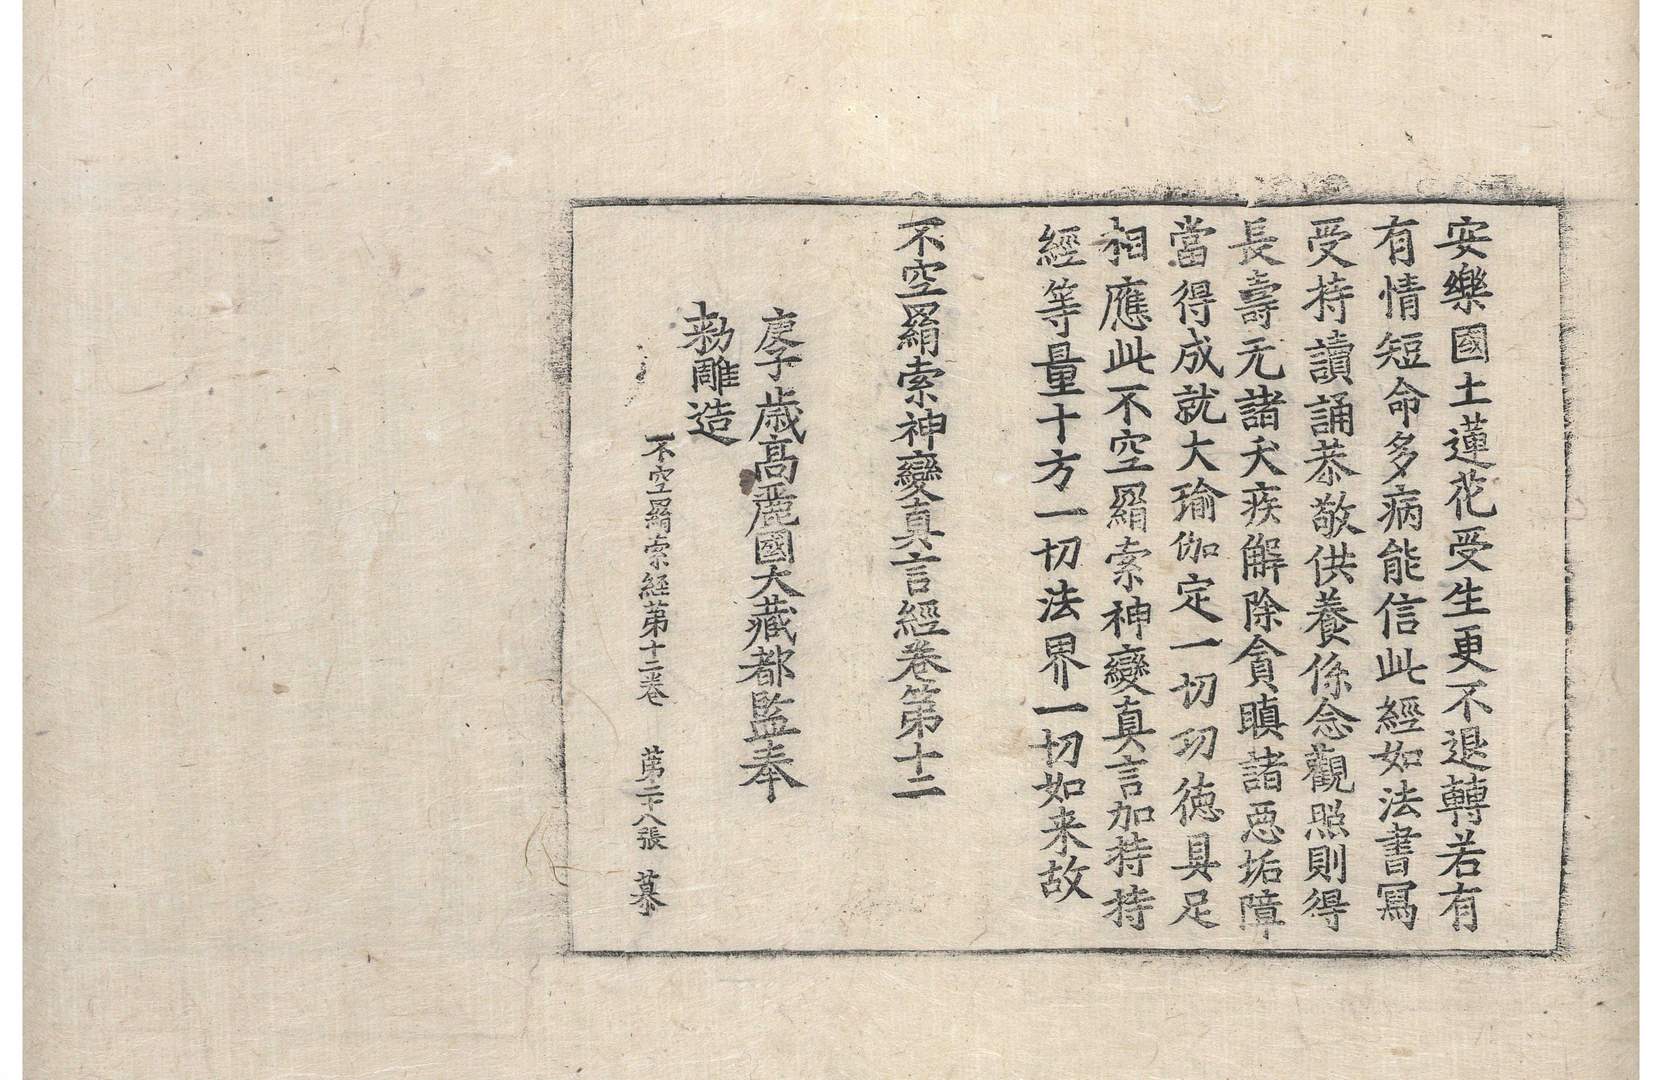 安樂國土蓮花受生更不退轉若有
有情短命多病能信此經如法書寫
受持讀誦恭敬供養係念觀照則得
長壽无諸疾解除貪瞋諸惡垢障
當得成就大瑜伽定一切功德具足
相應此不空羂索神變真言加持持
經等量十方一切法界一切如来故
不空羂索神變真言經卷第十二
庚子歲高麗國大藏都監奉
勑雕造
不空羂索経苐十二卷 苐二十八張